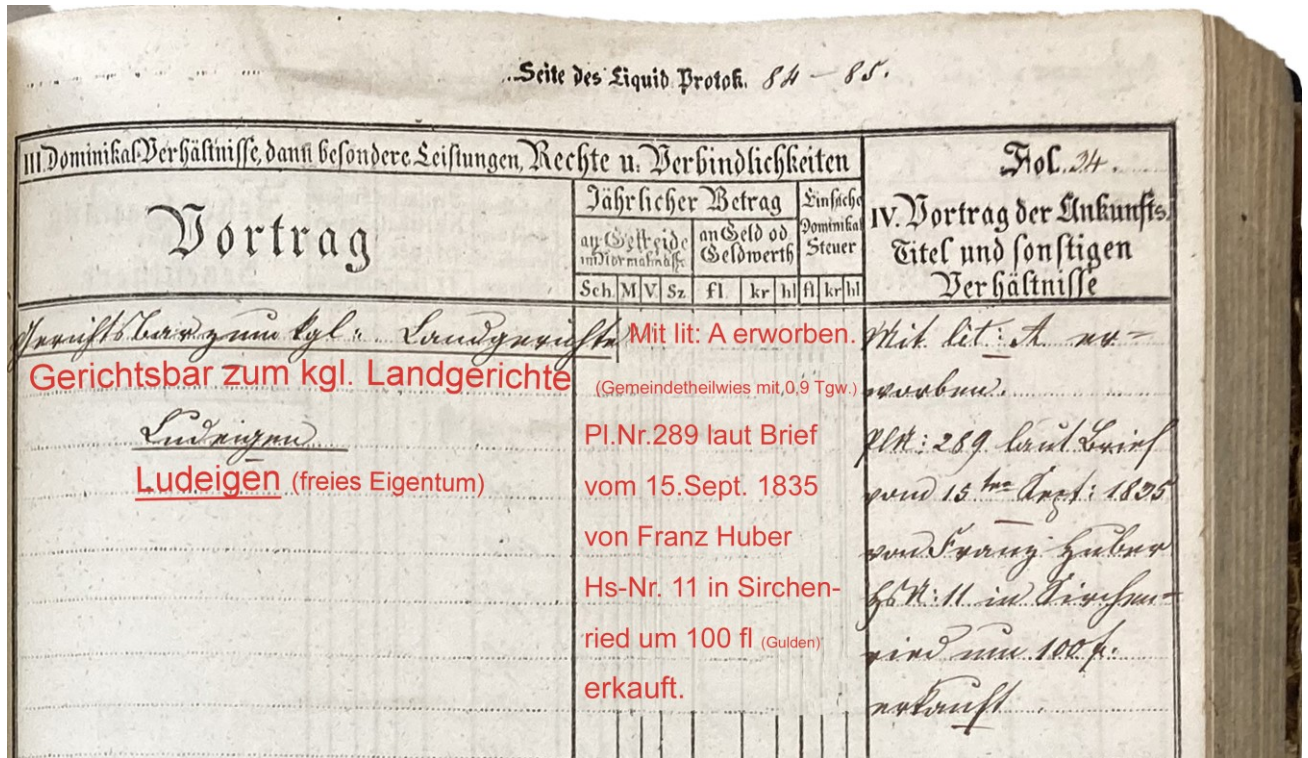 Seite des Liquid. Protok. 84 – 85.
III. Dominikal-Verhältnisse, dann besondere Leistungen, Rechte u. Verbindlichkeiten
Vortrag
Jährlicher Betrag
an Getreide
im Normalmaß.
an Geld od.
Geldwerth
Einfache
Dominikal
Steuer
Sch. M V. Sz fl kr hl fl kr hl
Fol. 34.
IV. Vortrag der Ankunfts-
Titel und sonstigen
Verhältnisse
Gerichtsbar zum kgl: Landgerichte
Gerichtsbar zum kgl. Landgerichte
Ludeigen
Ludeigen (freies Eigentum)
Mit lit: A erworben.
(Gemeindetheilwies mit,0,9 Tgw.)
Pl.Nr.289 laut Brief
vom 15.Sept. 1835
von Franz Huber
Hs-Nr. 11 in Sirchen-
ried um 100 fl (Gulden)
erkauft.
Mit lit: A er=
worben.
PlN: 289 laut Brief
vom 15ten Sept: 1835
von Franz Huber
HsN: 11 in Sirchen=
ried um 100 f.
erkauft.